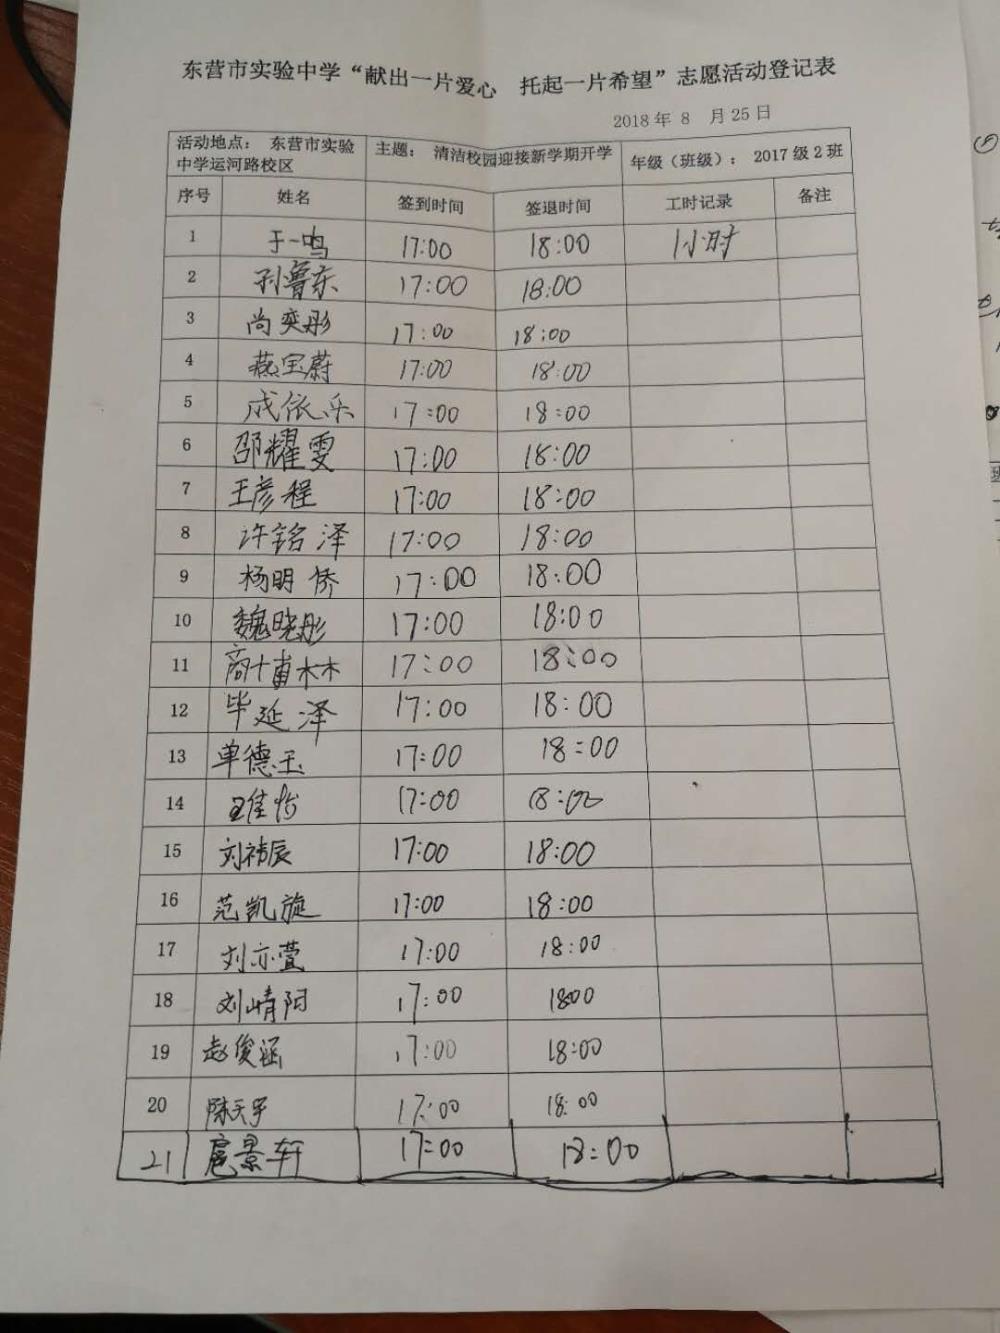 东营市实验中学“献出一片爱心 托起一片希望”志愿活动登记表
2018 年 8 月 25 日
活动地点： 东营市实验中学运河路校区 主题： 清洁校园迎接新学期开学 年级（班级）： 2017 级 2 班
序号 姓名 签到时间 签退时间 工时记录 备注
1 于一鸣 17:00 18:00 1小时
2 孙鲁东 17:00 18:00
3 尚奕彤 17:00 18:00
4 燕宝蔚 17:00 18:00
5 成依乐 17:00 18:00
6 邵耀雯 17:00 18:00
7 王彦程 17:00 18:00
8 许铭泽 17:00 18:00
9 杨明侨 17:00 18:00
10 魏晓彤 17:00 18:00
11 商十甫木木 17:00 18:00
12 毕延泽 17:00 18:00
13 单德玉 17:00 18:00
14 王佳怡 17:00 18:00
15 刘祎辰 17:00 18:00
16 范凯旋 17:00 18:00
17 刘亦萱 17:00 18:00
18 刘崝阳 17:00 1800
19 赵俊涵 17:00 18:00
20 陈天宇 17:00 18:00
21 扈景轩 17:00 18:00